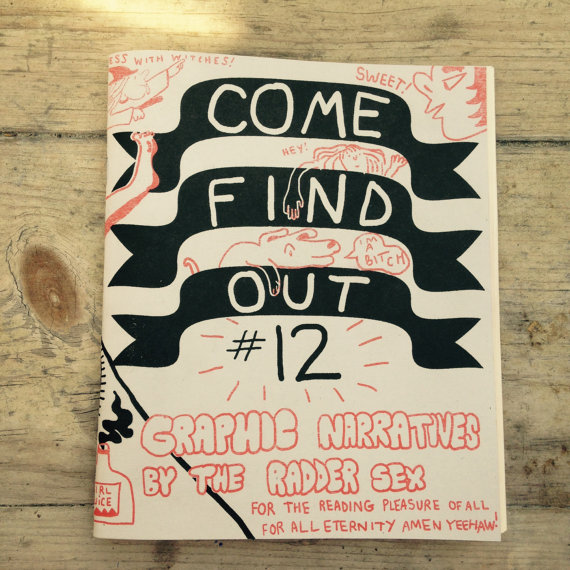 ESS WITH WITCHES!
SWEET!
COME
HEY!
FIND
I'M
A
BITCH
OUT
#12
GRAPHIC NARRATIVES
BY THE RADDER SEX
FOR THE READING PLEASURE OF ALL
FOR ALL ETERNITY AMEN YEEHAW!
IRL
UICE